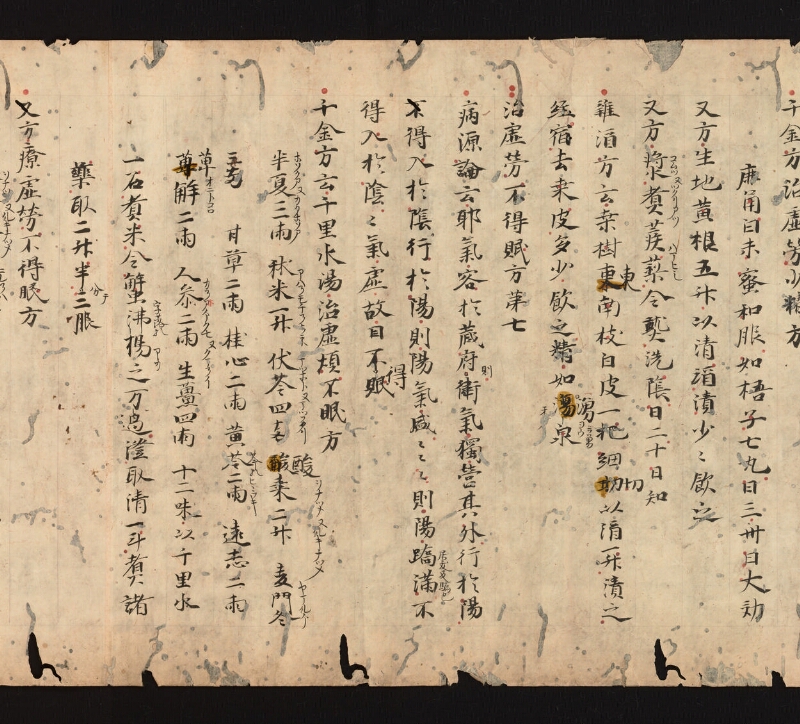 千金方治虚勞少精方
鹿角白末蜜和服如梧子七丸日三卅日大効
又方生地黃根五升以清酒漬少々飲之
又方漿煮蒺䔧令熟洗陰日二十日知
雜酒方云桒樹東南枝白皮一把細切以酒一升漬之
經宿去桒皮多少飲之精如湧泉
治虚勞不得眠方第七
病源論云耶氣客於藏府則衛氣獨營其外行於陽
不得入於陰行於陽則陽氣盛々々則陽蹻滿不
得入於陰々氣虚故目不得眠
千金方云千里水湯治虚煩不眠方
半夏三兩 秫米一升 伏苓四兩 酸棗二升 麦門冬
三兩 甘草二兩 桂心二兩 黃芩二兩 遠志二兩
萆解二兩 人參二兩 生薑四兩 十二味以千里水
一石煮米令蟹沸揚之万過澄取清一斗煮諸
藥取二升半分三服
又方療虚勞不得眠方